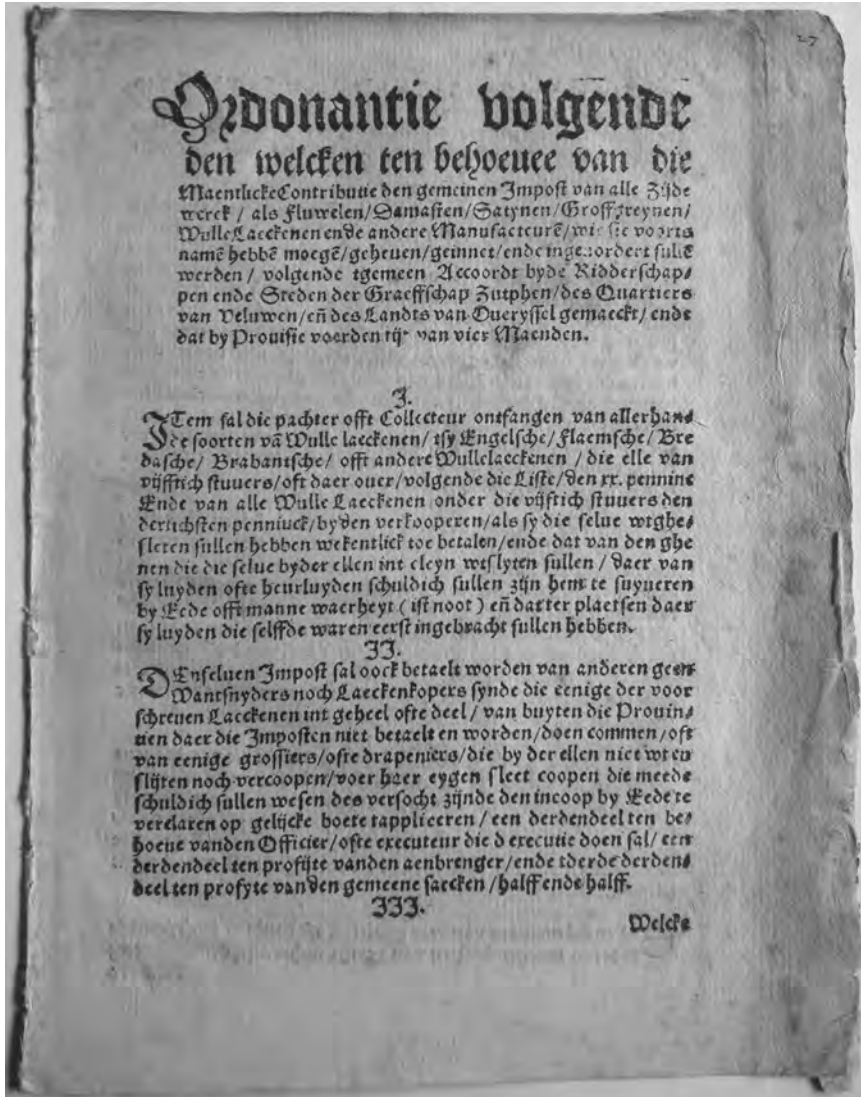 27
Ordonantie volgende
den welcken ten behoeuee van die
Maentlicke Contributie den gemeinen Impost van alle Zijde
werck / als Fluwelen/Damasten/Satynen/Groffgreynen/
Wulle Laeckenen ende andere Manufacteurē/wie sie voorts
namē hebbē moegē/geheuen/geinnet/ende ingeuordert sullē
werden / volgende tgemeen Accoordt bydē Ridderschap/
pen ende Steden der Graeffschap Zutphen/des Quartiers
van Veluwen/eñ des Landts van Oueryssel gemaeckt/ ende
dat by Prouisie voor den tijt van vier Maenden.
I.
ITem sal die pachter offt Collecteur ontfangen van allerhan/
de soorten vā Wulle laeckenen/ tsy Engelsche/Flaemsche/Bre
dasche/ Brabantsche/ offt andere Wullelaeckenen / die elle van
vijfftich stuuers/oft daer ouer/volgende die Liste/den xx. pennine
Ende van alle Wulle Laeckenen onder die vijftich stuuers den
dertichsten penninck/by den verkooperen/als sy die selue wtghe/
sleten sullen hebben wekentlick toe betalen/ende dat van den ghe
nen die die selue byder ellen int cleyn wtslyten sullen / daer van
sy luyden ofte heurluyden schuldich sullen zijn hem te suyueren
by Eede offt manne waerheyt ( ist noot ) eñ dat ter plaetsen daer
sy luyden die selffde waren eerst ingebracht sullen hebben.
II.
DEnseluen Impost sal oock betaelt worden van anderen geen
Wantsnyders noch Laeckenkopers synde die eenige der voor
schreuen Laeckenen int geheel ofte deel / van buyten die Prouin/
tien daer die Imposten niet betaelt en worden/doen commen/oft
van eenige grossiers/ofte drapeniers/die by der ellen niet wt en
slijten noch vercoopen/voer haer eygen sleet coopen die meede
schuldich sullen wesen des versocht zijnde den incoop by Eede te
verclaren op gelijcke boete tappliceren / een derdendeel ten be/
hoeue vanden Officier/ofte executeur die d executie doen sal/ een
derdendeel ten profijte vanden aenbrenger/ende tderde derden/
deel ten profyte van den gemeene saecken /halff ende halff.
III.
Welcke